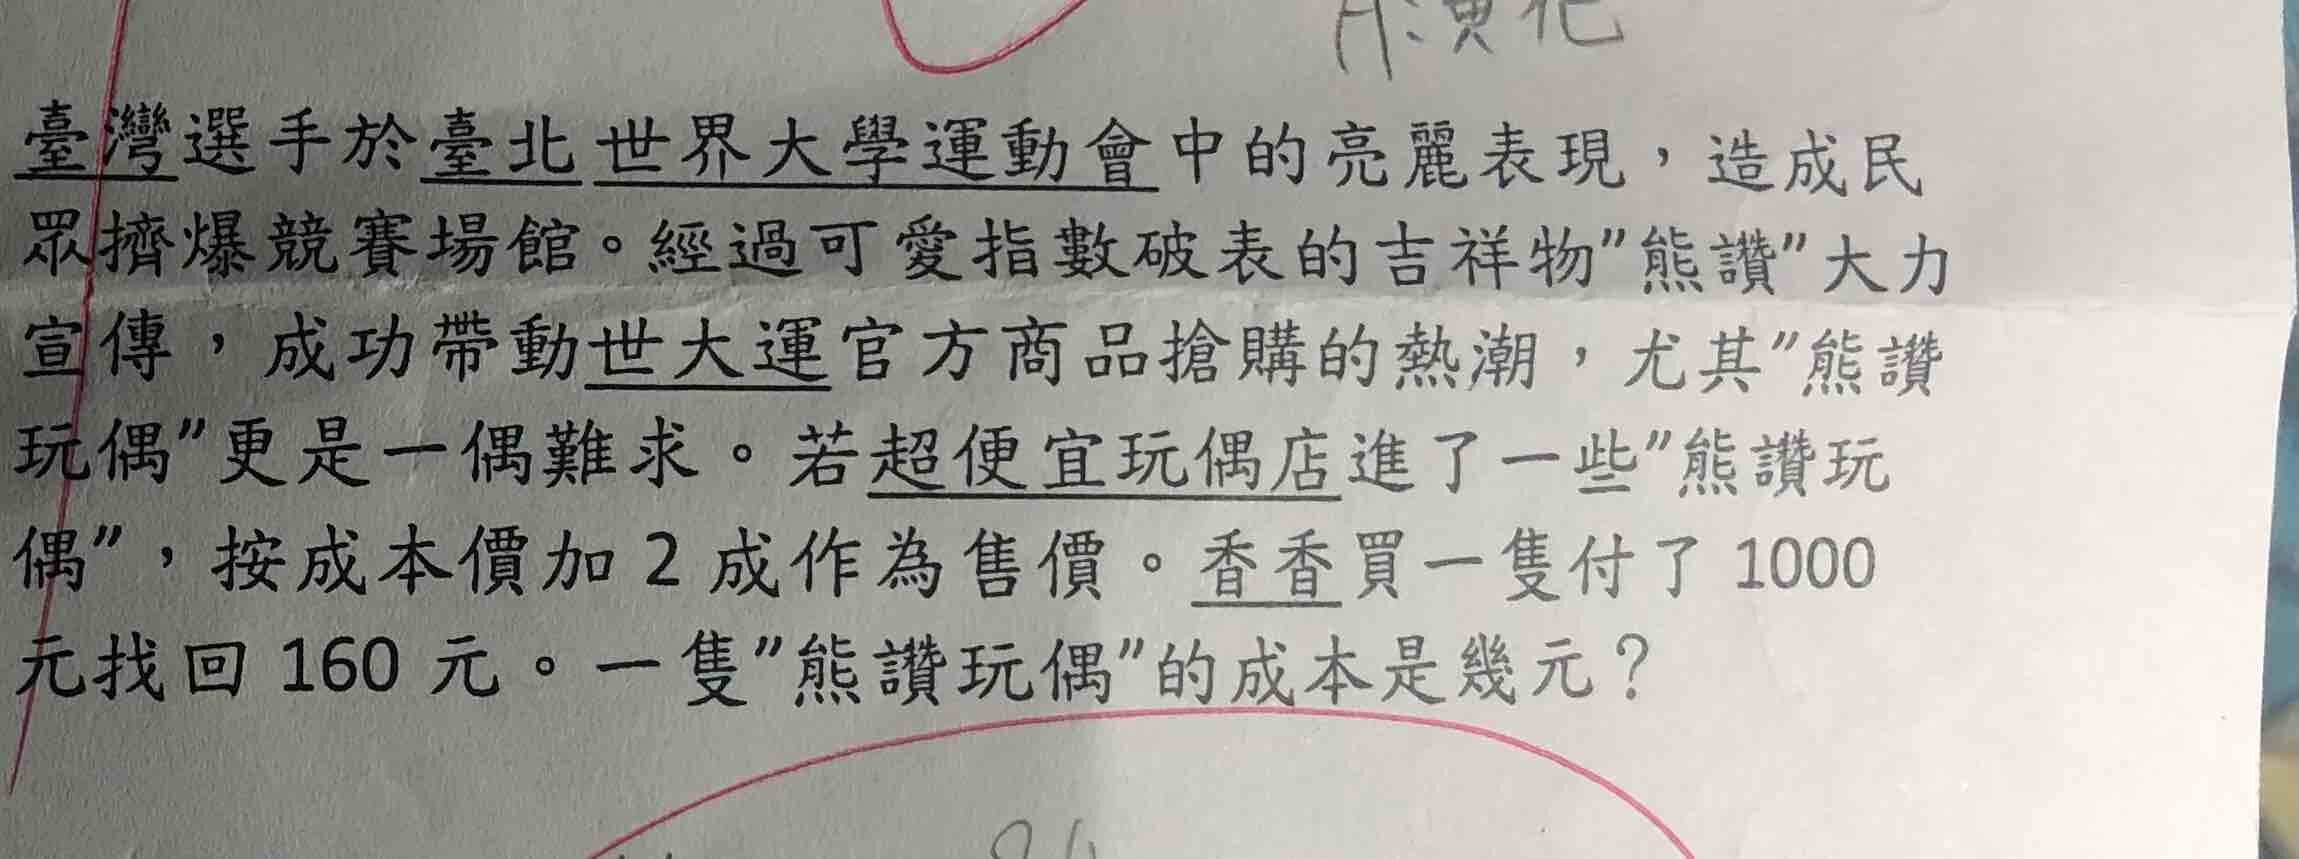 演化
臺灣選手於臺北世界大學運動會中的亮麗表現，造成民
眾擠爆競賽場館。經過可愛指數破表的吉祥物”熊讚”大力
宣傳，成功帶動世大運官方商品搶購的熱潮，尤其”熊讚
玩偶”更是一偶難求。若超便宜玩偶店進了一些”熊讚玩
偶”，按成本價加 2 成作為售價。香香買一隻付了 1000
元找回 160 元。一隻”熊讚玩偶”的成本是幾元？